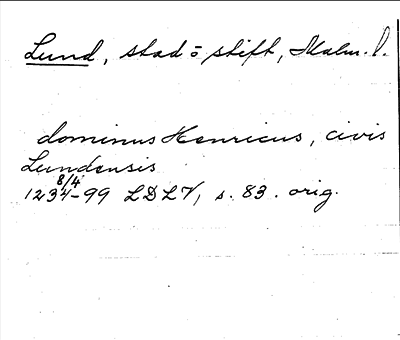 Lund, stad o stift, Malm. l.
dominus Henricus, civis
Lundensis
8/4
1234-99 LDLV, s. 83. orig.